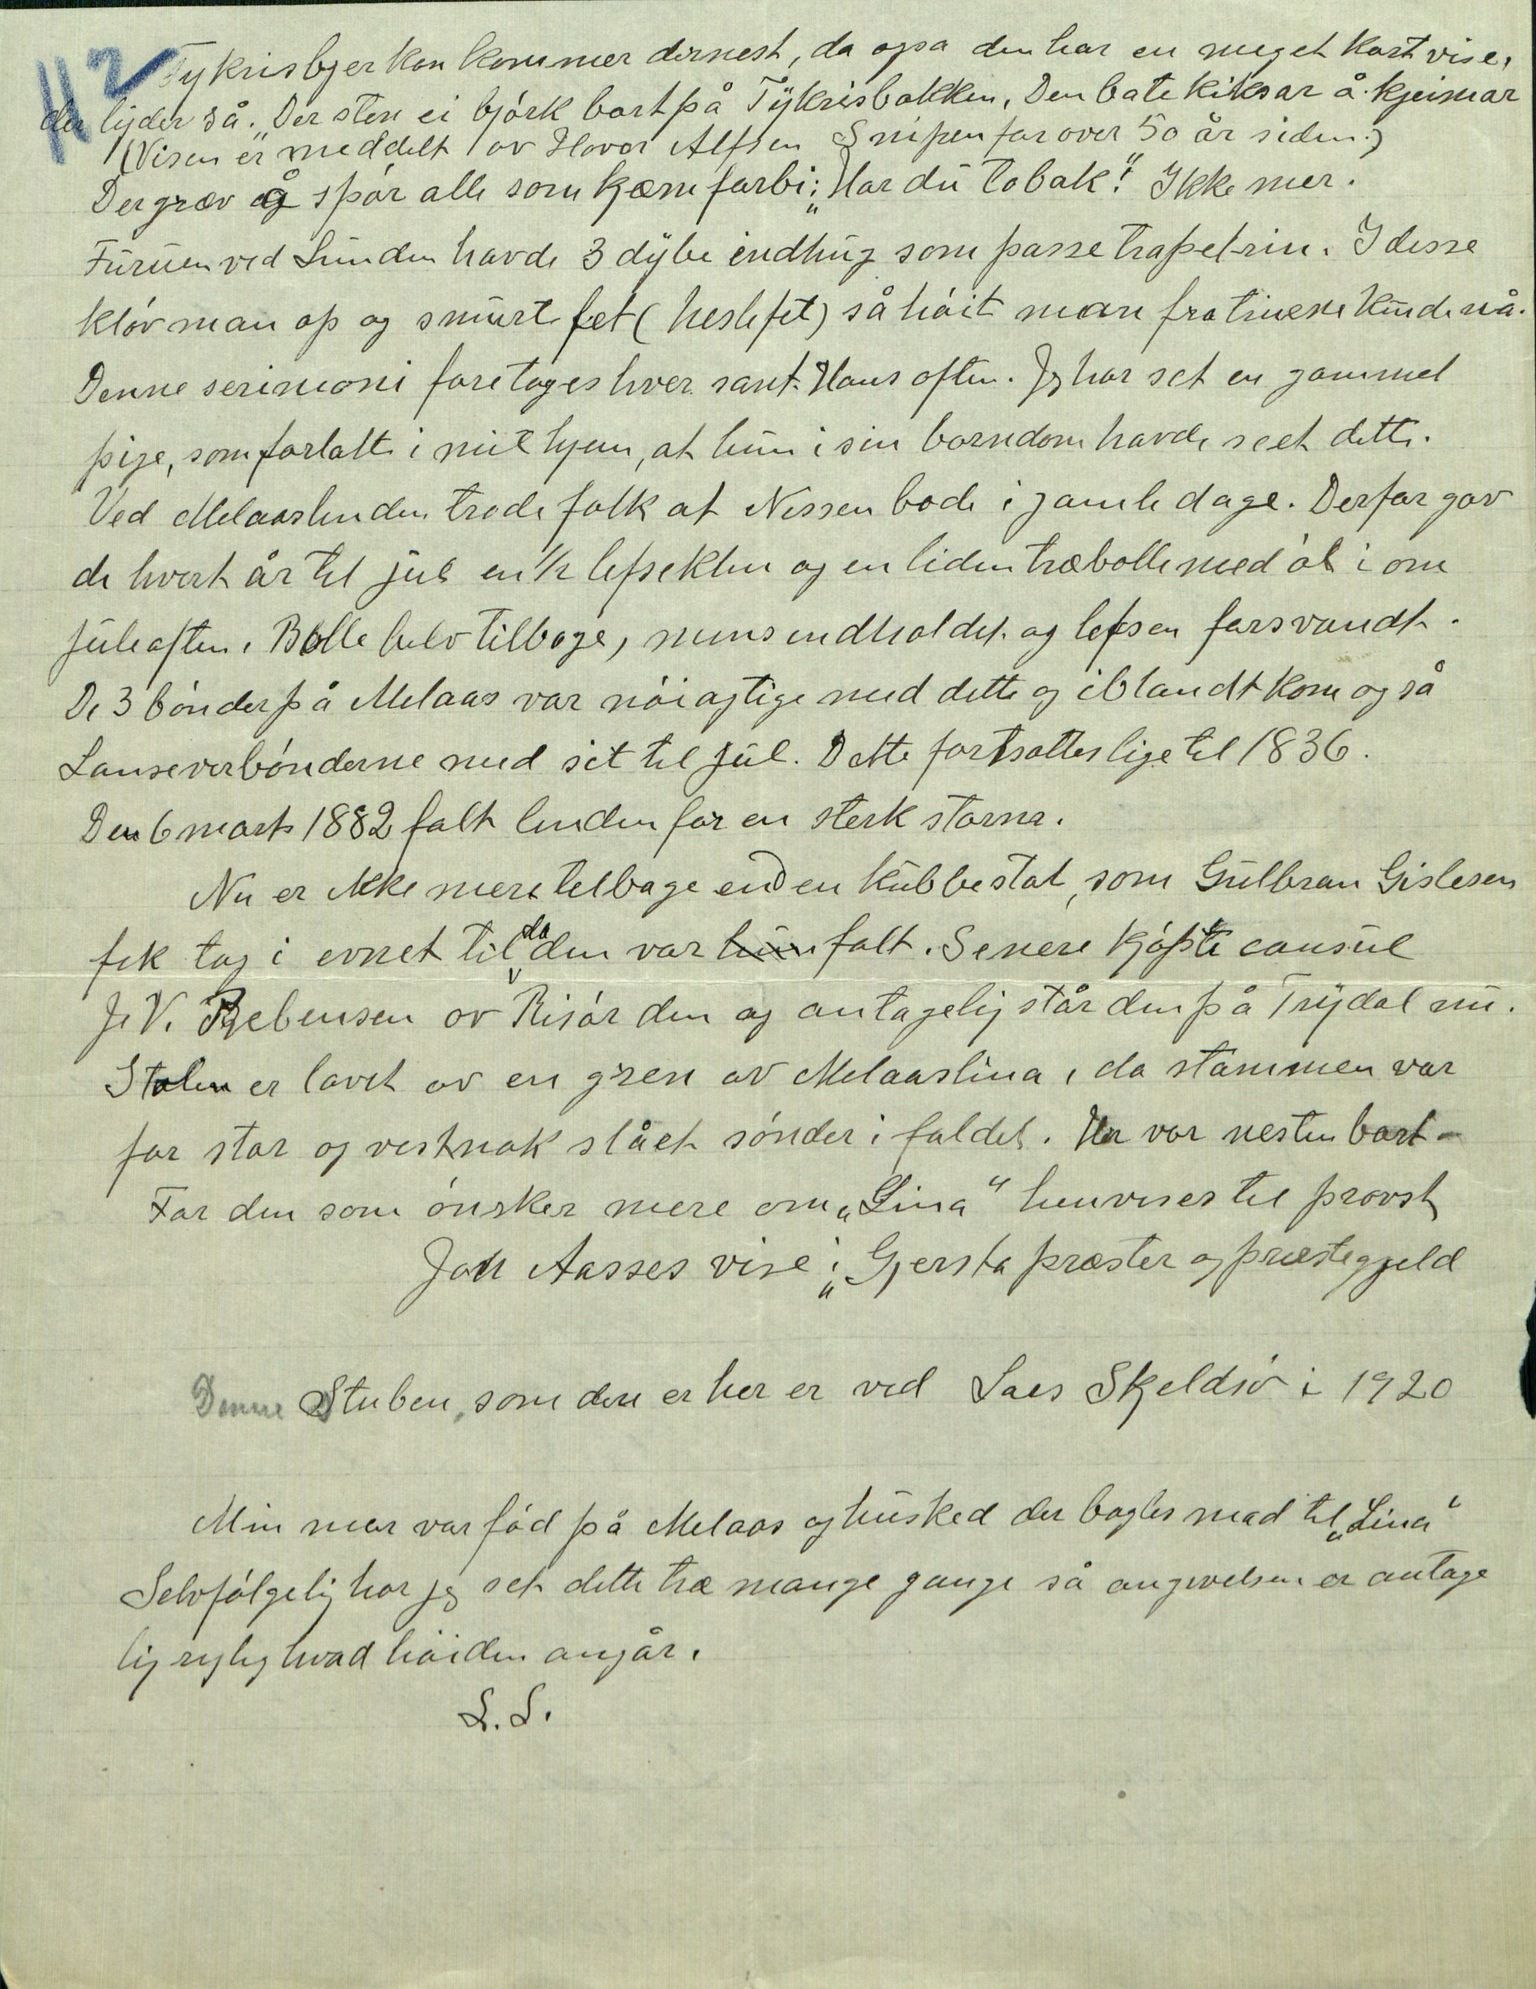 112
Tykrisbjerkan kommer dernest, da ogsa den har en meget kort vise,
der lyder så. „Der sten ei bjørk bort på Tykrisbakken, Den bate kiksar å kjeimar
(Visen er meddelt av Hovor Alfsen Snipen for over 50 år siden.)
Der græv og spør alle som kjæm forbi: „Har du tobak!" Ikke mer.
Furuen ved Lunden havde 3 dybe indhug som passe trapetrin. I desse
kløv man op og smurte fet (heslefet) så høit man fra trinene kunde nå.
Denne serimoni foretoges hver sant. Hans often. Jeg har set en gammel
pige, som fortalte i mit hjem, at hun i sin barndom havde seet dette.
Ved Melaaslinden trode folk at Nissen bode i gamle dage. Derfor gav
de hvert år til jul en ½ lefseklin og en liden træbolle med øl i om
juleaften. Bolle blev tilbage, mens indholdet og lefsen forsvandt.
De 3 bønder på Melaas var nøiagtige med dette og iblandt kom også
Lanseverbønderne med sit til jul. Dette fortsattes lige til 1836.
Den 6 marts 1882 falt linden for en sterk storm.
Nu er ikke mere tilbage end en kubbestol, som Gulbran Gislesen
fik tag i evnet til da den var falt. Senere kjøpte consul
J. V. Prebensen av Risør den og antagelig står den på Trydal nu.
Stolen er lavet av en gren av Melaaslina, da stammen var
for stor og vestnok slået sønder i faldet. Den var nesten bort-
For den som ønsker mere om „Lina" henvises til provst
Joh Aasses vise i „Gjersta præster og prestegjeld
Denne Stuben, som den er her er ved Lars Skjeldsø i 1920
Min mor var fød på Melaas og husked der bagtes mad til „Lina"
Selvfølgelig har jeg set dette træ mange gange så angivelsen er antage
lig rigtig hvad høiden angår.
L. S.